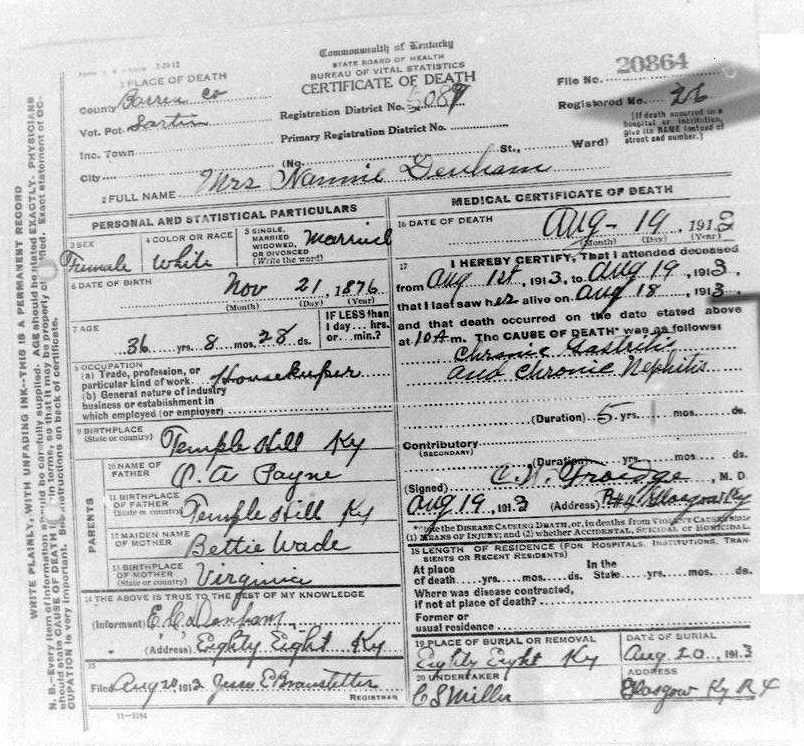 Commonwealth of Kentucky
STATE BOARD OF HEALTH
BUREAU OF VITAL STATISTICS
CERTIFICATE OF DEATH
File No. 20864
Registered No. 26
[If death occurred in a hospital or institution, give its NAME instead of street and number.]
1 PLACE OF DEATH
County Barren Co
Vot. Pct.
Inc. Town
City
Registration District No. 5089
Primary Registration District No.
(No. St., Ward)
2 FULL NAME Mrs Nannie Denham
PERSONAL AND STATISTICAL PARTICULARS
3 SEX Female
4 COLOR OR RACE White
5 SINGLE, MARRIED WIDOWED, OR DIVORCED (Write the word) Married
6 DATE OF BIRTH Nov 21, 1876
(Month) (Day) (Year)
7 AGE 36 yrs. 8 mos. 28 ds.
IF LESS than 1 day... hrs. or... min.?
8 OCCUPATION
(a) Trade, profession, or particular kind of work Housekeeper
(b) General nature of industry business or establishment in which employed (or employer)
9 BIRTHPLACE (State or country) Temple Hill Ky
PARENTS
10 NAME OF FATHER Payne
11 BIRTHPLACE OF FATHER (State or country) Temple Hill Ky
12 MAIDEN NAME OF MOTHER Bettie Wade
13 BIRTHPLACE OF MOTHER (State or country) Virginia
14 THE ABOVE IS TRUE TO THE BEST OF MY KNOWLEDGE
(Informant) Denham
(Address) Eighty Eight Ky
15
Filed Aug 20 1913 Jess E Branstetter
REGISTRAR
11-3184
MEDICAL CERTIFICATE OF DEATH
16 DATE OF DEATH Aug - 19, 1913
(Month) (Day) (Year)
17 I HEREBY CERTIFY, That I attended deceased
from Aug 1st, 1913, to Aug 19, 1913,
that I last saw her alive on Aug 18, 1913
and that death occurred on the date stated above
at 10 A m. The CAUSE OF DEATH* was as follows:
Chronic Gastritis
and Chronic Nephitis
(Duration) 5 yrs. mos. ds.
Contributory
(SECONDARY)
(Duration) yrs. mos. ds.
(Signed) , M. D
Aug 19, 1913 (Address) R #4 Glasgow Ky
*State the DISEASE CAUSING DEATH, or, in deaths from VIOLENT CAUSES state
(1) MEANS OF INJURY; and (2) whether ACCIDENTAL, SUICIDAL or HOMICIDAL
18 LENGTH OF RESIDENCE (FOR HOSPITALS, INSTITUTIONS, TRANSIENTS OR RECENT RESIDENTS)
At place of death yrs. mos. ds. In the State yrs. mos. ds.
Where was disease contracted, if not at place of death?
Former or usual residence
19 PLACE OF BURIAL OR REMOVAL
Eighty Eight Ky
DATE OF BURIAL
Aug 20, 1913
20 UNDERTAKER
C S Miller
ADDRESS
Glasgow Ky R 4
WRITE PLAINLY, WITH UNFADING INK--THIS IS A PERMANENT RECORD